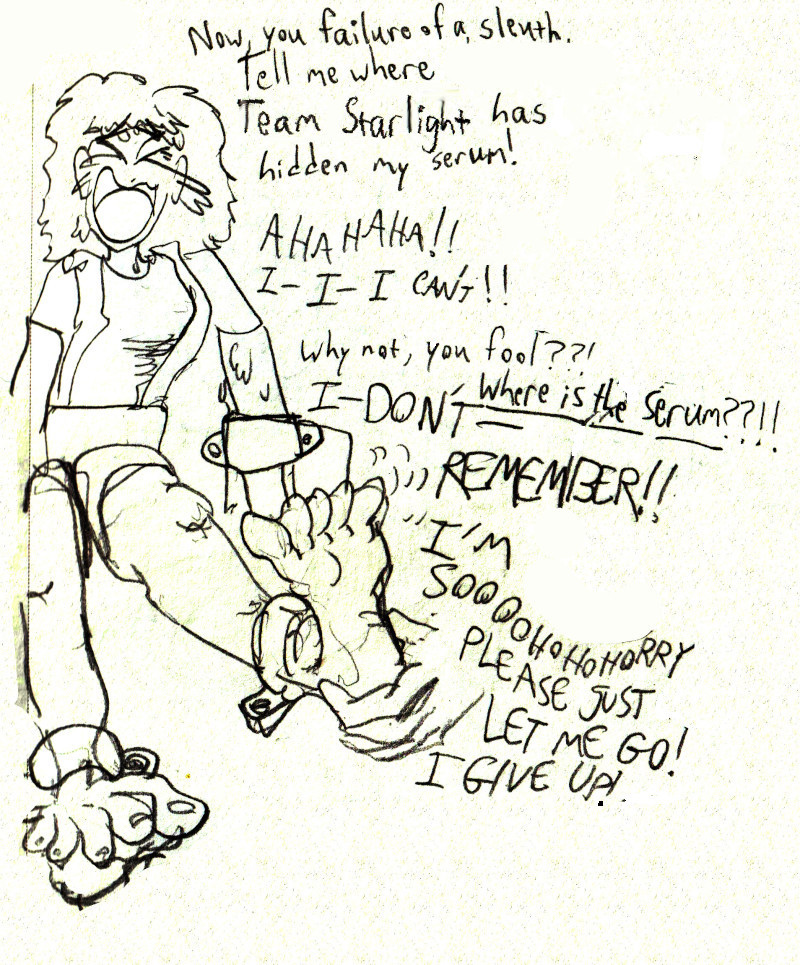 Now, you failure of a sleuth.
Tell me where
Team Starlight has
hidden my serum!
AHAHAHA!!
I-I-I CAN'T!!
Why not, you fool??!
I-DON'T Where is the serum??!!
REMEMBER!!
I'M
SOOOOHOHOHORRY
PLEASE JUST
LET ME GO!
I GIVE UP!